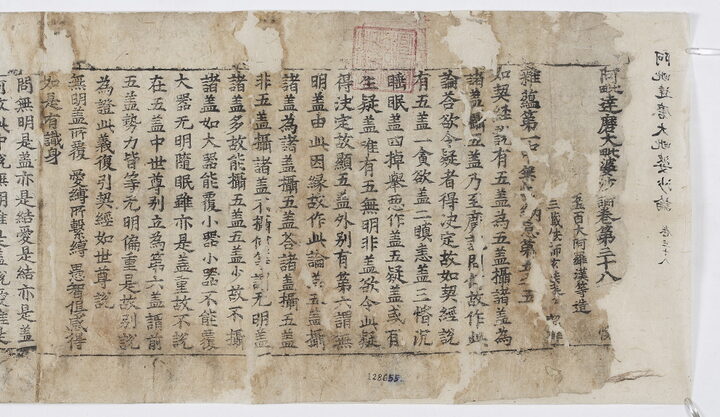 阿毗達磨大毗婆沙論 卷三十八
阿毗達磨大毗婆沙論卷第三十八
五百大阿羅漢等造
三藏法師玄奘
雜蘊第一 無 納息第五之五
如契經說有五盖為五盖攝諸盖為
諸盖攝五盖乃至廣說 故作此
論答欲令疑者得決定故如契經說
有五盖一貪欲盖二瞋恚盖三惛沉
睡眠盖四掉舉惡作盖五疑盖或有
生疑盖唯有五無明非盖欲令此疑
得決定故顯五盖外別有第六謂無
明盖由此因緣故作此論 五盖攝
諸盖為諸盖攝五盖答諸盖攝五盖
非五盖攝諸盖不攝何等謂无明盖
諸盖多故能攝五盖五盖少故不攝
諸盖如大器能覆小器小器不能覆
大器无明隨眠雖亦是盖重故不說
在五盖中世尊別立為第六盖謂前
五盖勢力皆等无明偏重是故別說
為證此義復引契經如世尊說
無明盖所覆 愛縛所繫縛 愚智俱感得
如是有識身
問無明是盖亦是結愛是結亦是盖
何故此中說無明唯是盖說愛唯是
128655